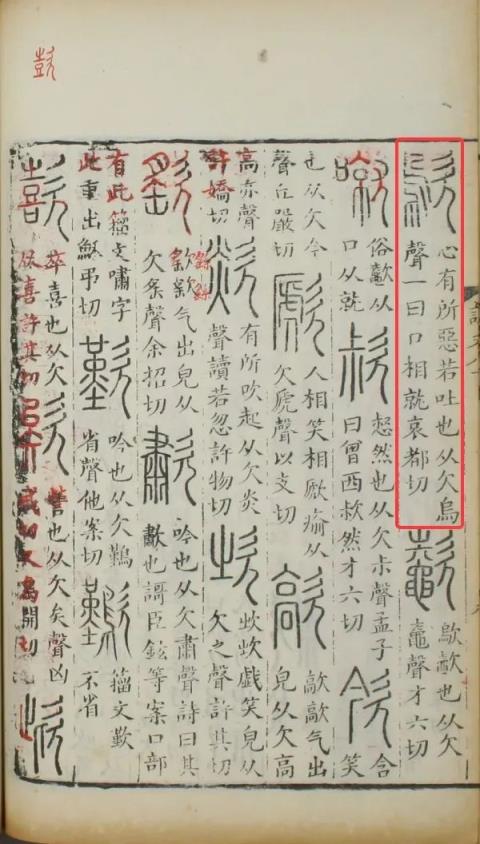 𣢑
歍
心有所惡若吐也从欠烏
聲一曰口相就哀都切
𣤶
歍𣤶也从欠
鼀聲才六切
噈
俗𣤶从
口从就
㰗
怒然也从欠尗聲孟子
曰曾西㰗然才六切
㰸
含笑
也从欠今
聲丘嚴切
歋
人相笑相歋瘉从
欠虒聲以支切
歊
歊歊气出
皃从欠高
高亦聲
許嬌切
欻
有所吹起从欠炎
聲讀若忽許物切
㰞
㰞㰞戲笑皃从
欠之聲許其切
气出皃从
欠䍃聲余招切
歗
吟也从欠肅聲詩曰其
歗也謌臣鉉等案口部
有此籒文嘯字
此重出穌弔切
歎
吟也从欠鷬
省聲他案切
籒文歎
不省
歖
卒喜也从欠
从喜許其切
欸
訾也从欠矣聲凶
戒切又烏開切
欪